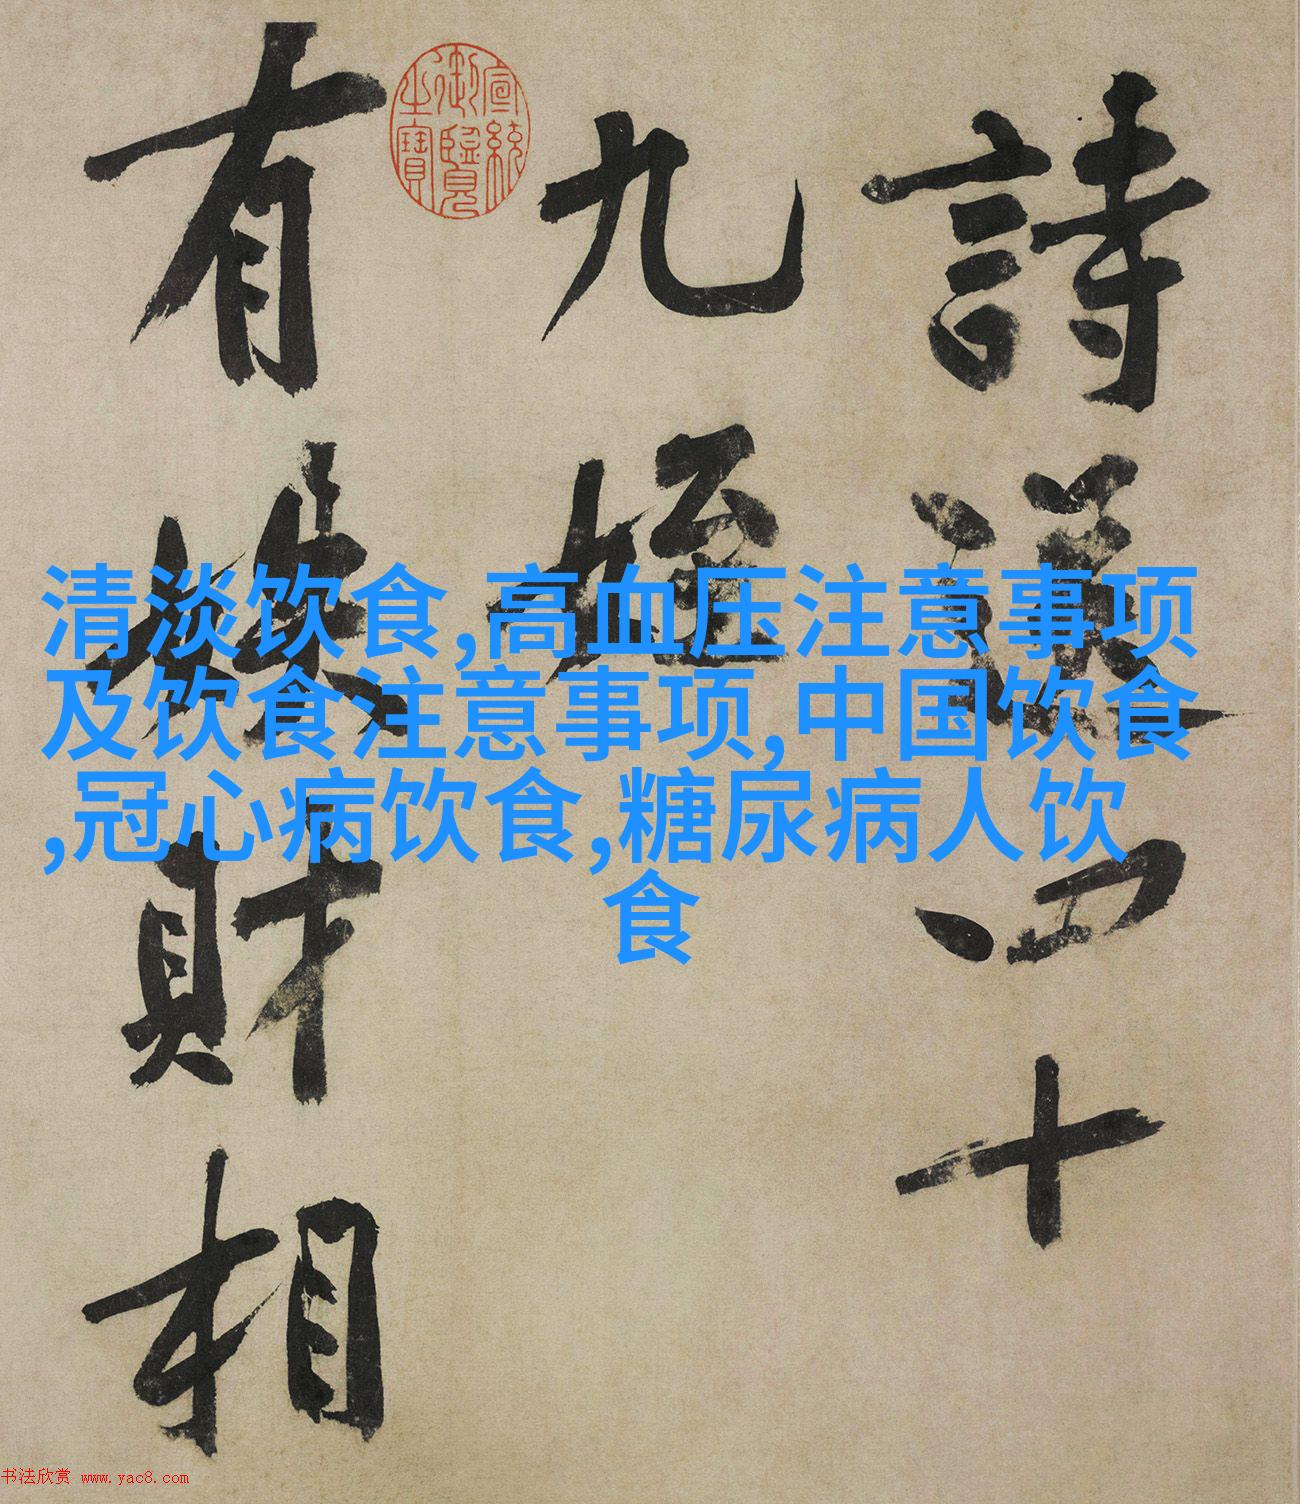 詩送四十
九姪
有財相
宣統
御覽
之寶
清淡饮食,高血压注意事项
及饮食注意事项,中国饮食
,冠心病饮食,糖尿病人饮
食
书法欣赏 www.yac8.com